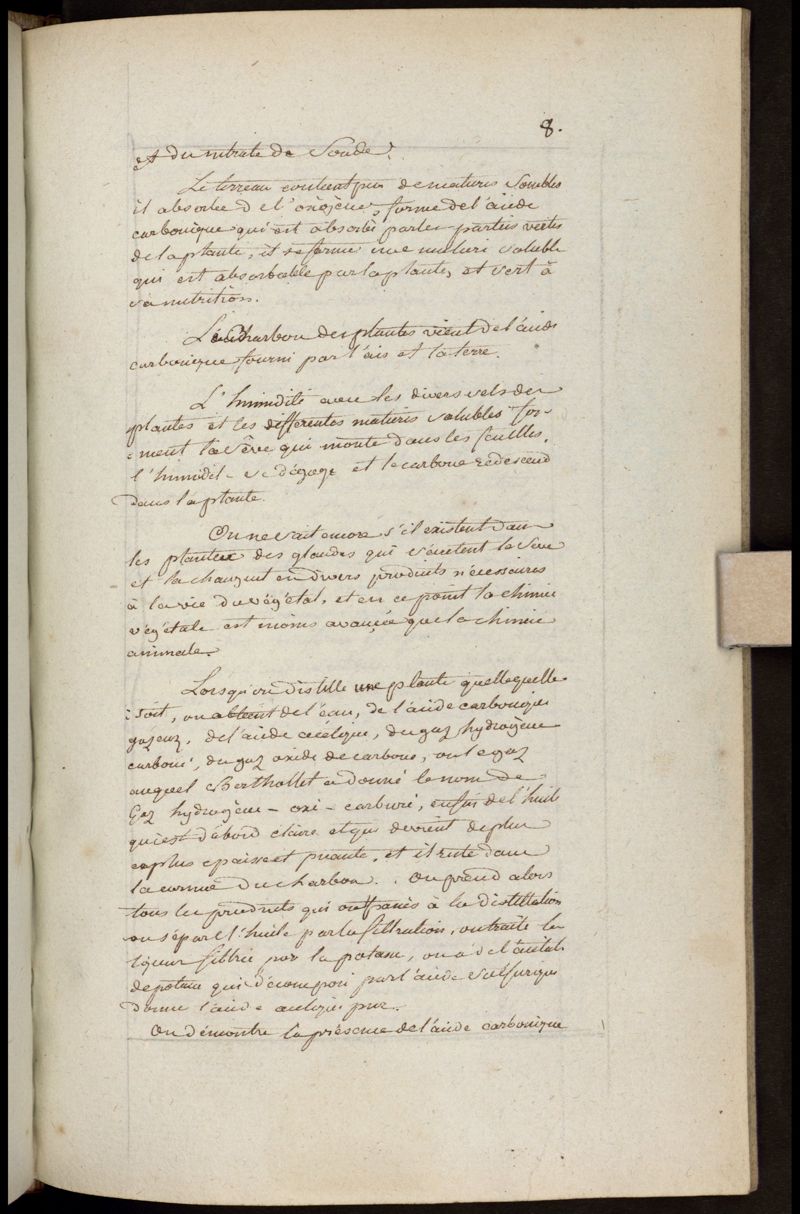 8.
et du nitrate de Soude.
Le terreau contient peu de matieres Solubles
il absorbe de l'oxigène, forme de l'acide
carbonique qui est absorbé par les parties vertes
de la plante, il se forme une matiere soluble
qui est absorbable par la plante, et sert à
sa nutrition.
Le Charbon des plantes vient de l'acide
carbonique fourni par l'air et la terre.
L'humidité avec les divers sels des
plantes et les differentes matieres solubles for-
=ment la sève qui monte dans les feuilles,
l'humidité se dégage et le carbone redescend
dans la plante.
On ne sait encore s'il existent dans
les plantes des glandes qui sécretent la seve
et la changent en divers produits nécessaires
à la vie du végétal, et en ce point la chimie
végétale est moins avancée que la chimie
animale.
Lorsqu'on distille une plante quelle quelle
soit, on obtient de l'eau, de l'acide carbonique
gazeux, de l'acide acétique, du gaz hydrogène
carboné, du gaz oxide de carbone, ou le gaz
auquel Berthollet a donné le nom de
Gaz hydrogène - oxi - carburé, enfin de l'huile
qui est d'abord claire et qui devient de plus
en plus epaisse et puante, et il reste dans
la cornue du charbon. On prend alors
tous les produits qui ont passés à la distillation
on sépare l'huile par la filtration, on traite la
liqueur filtrée par la potasse, on a de l'acétate
de potasse qui décomposé par l'acide sulfurique
donne l'acide acétique pur.
On démontre la présence de l'acide carbonique